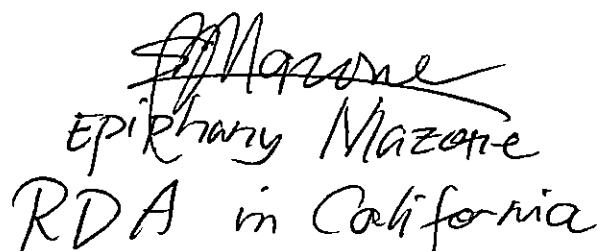 EMazone
Epiphany Mazone
RDA in California